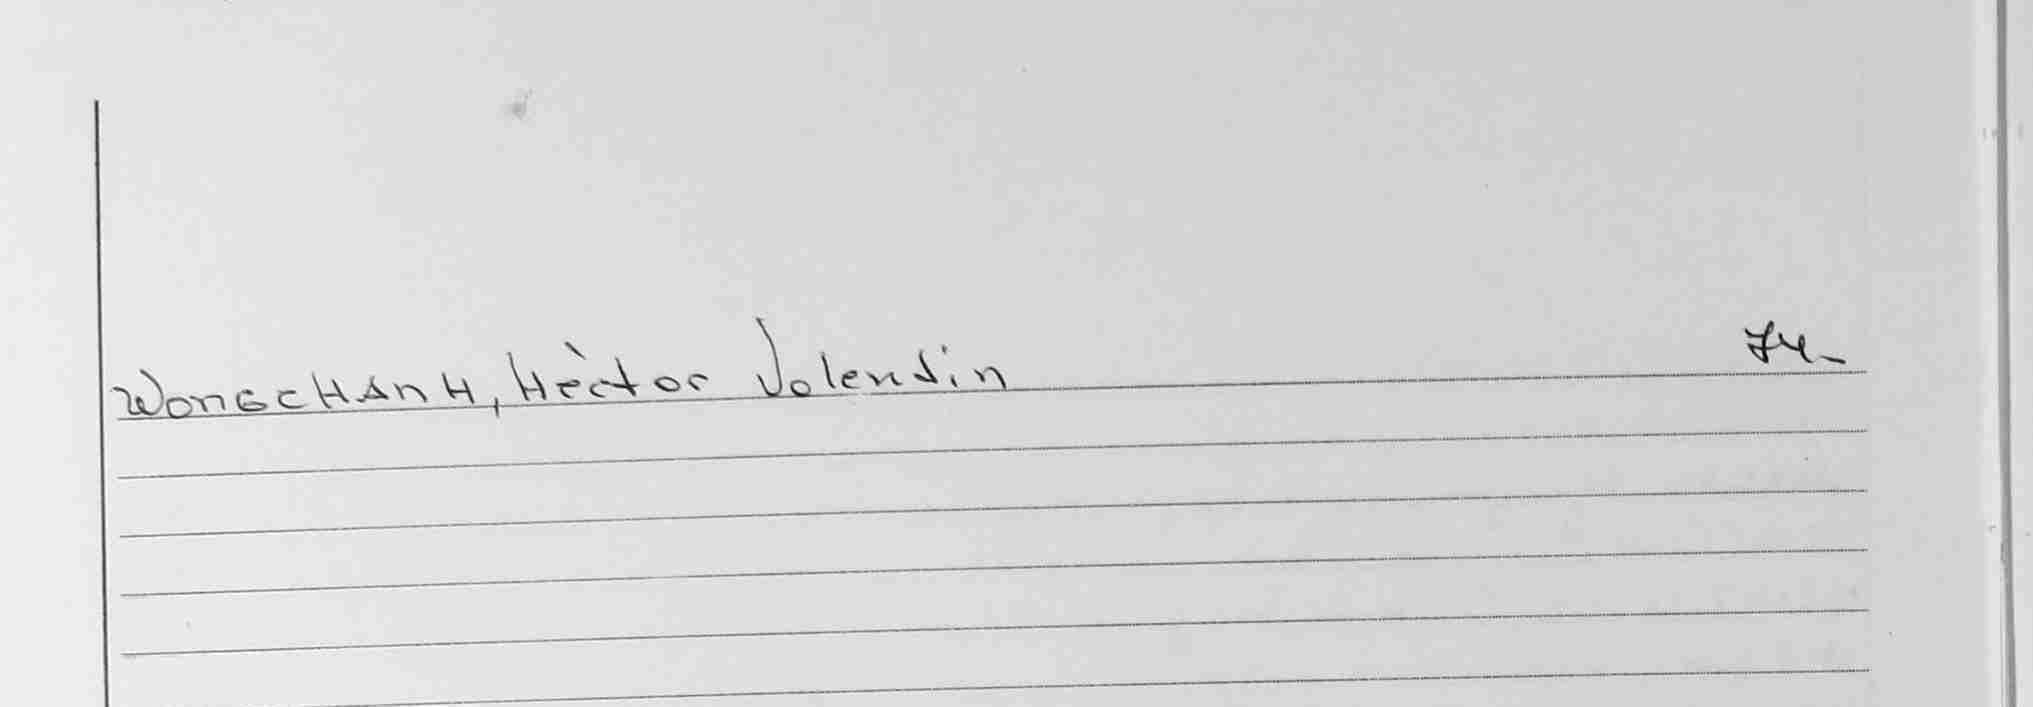 WongcHAnH, Hèctor Valentin 74-